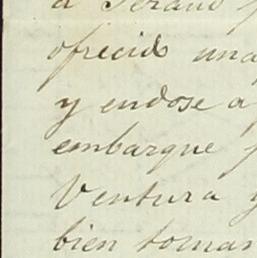 a Serano
ofrecido una
y endose a
embarque
Ventura y
bien tomar